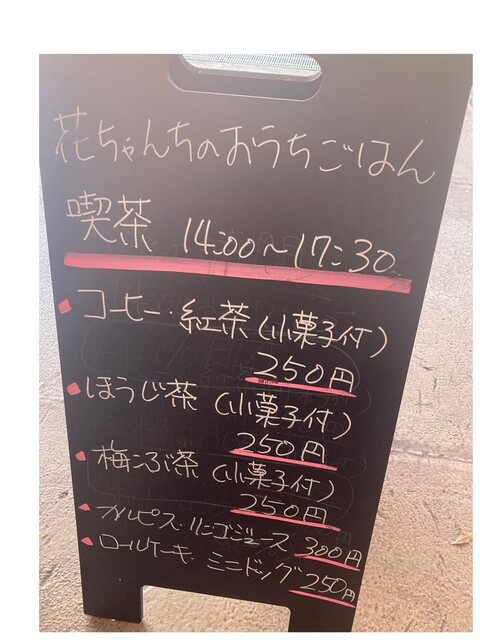 花ちゃんちのおうちごはん
喫茶 14:00〜17:30
コーヒー・紅茶(小菓子付)
250円
ほうじ茶(小菓子付)
250円
梅こぶ茶(小菓子付)
250円
カルピス・リンゴジュース 300円
ロールケーキ・ミニドッグ 250円